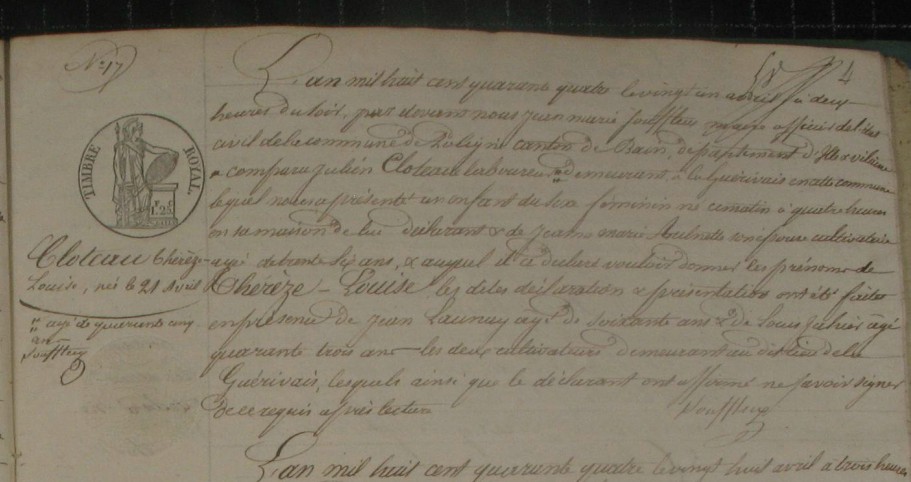 N° 17
4
L'an mil huit cent quarante quatre le vingt un avril à deux
heures du soir, par devant nous Jean marie Jouffteu maire officier de l'état
civil de la commune de Poligné canton de Bain, département d'Ille et vilaine
a comparu Julien Cloteau laboureur demeurant à la Guérivais en cette commune
lequel nous a présenté un enfant du sexe féminin né ce matin à quatre heures
en sa maison de lui déclarant & de Jeanne marie son épouse cultivatrice
agé de trente six ans, & auquel il a déclaré vouloir donner les prénoms de
Thérèze - Louise les dites déclaration & présentation ont été faites
en présence de Jean Launay agé de soixante ans & de Louis Julien âgé
quarante trois ans les deux cultivateurs demeurant au dit lieu de la
Guérivais, lesquels ainsi que le déclarant ont affirmé ne savoir signer
de ce requis après lecture
TIMBRE ROYAL
1F.25C
Cloteau Thérèze
Louise, né le 21 Avril
agé de quarante cinq
ans
L'an mil huit cent quarante quatre le vingt huit avril à trois heures